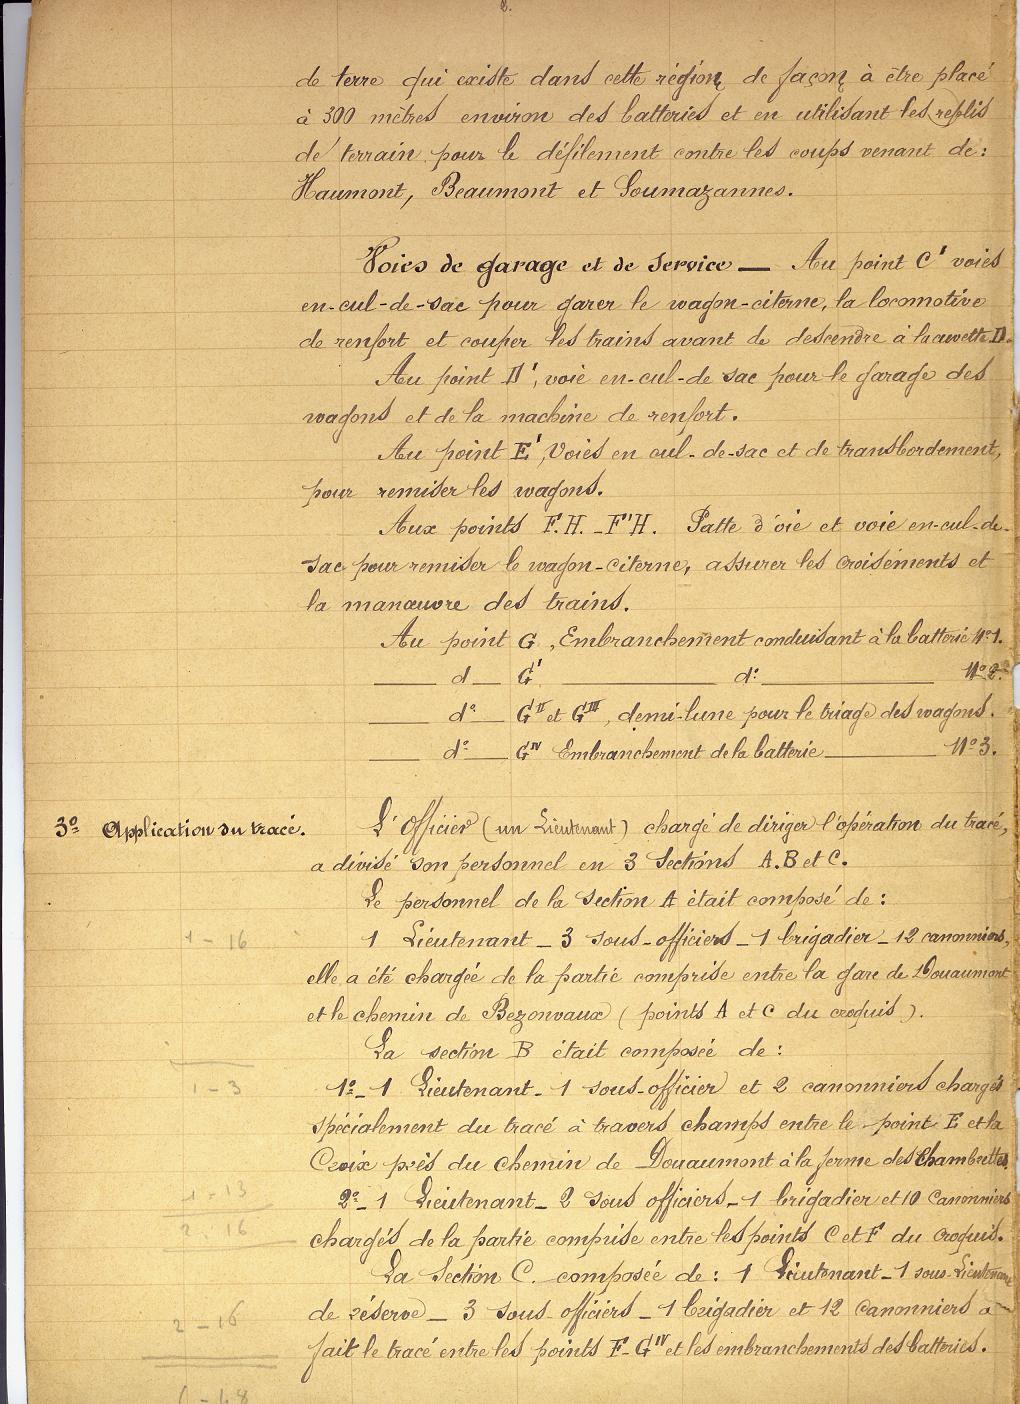 2.
de terre qui existe dans cette région, de façon à être placé
à 300 mètres environ des batteries et en utilisant les replis
de terrain pour le défilement contre les coups venant de :
Haumont, Beaumont et Soumazannes.
Voies de garage et de service — Au point C' voies
en-cul-de-sac pour garer le wagon-citerne, la locomotive
de renfort et couper les trains avant de descendre à la cuvette D.
Au point D', voie en-cul-de sac pour le garage des
wagons et de la machine de renfort.
Au point E', Voies en cul-de-sac et de transbordement,
pour remiser les wagons.
Aux points F.H. - F'H. Patte d'oie et voie en-cul-de-
sac pour remiser le wagon-citerne, assurer les croisements et
la manœuvre des trains.
Au point G, Embranchement conduisant à la batterie N°1.
— d — G' — d° — N°2.
— d° — G II et G III, demi-lune pour le triage des wagons.
— d° — G IV Embranchement de la batterie — N°3.
3° Application du tracé.
L'Officier (un Lieutenant) chargé de diriger l'opération du tracé,
a divisé son personnel en 3 Sections A.B et C.
Le personnel de la section A était composé de :
1 Lieutenant - 3 sous-officiers - 1 brigadier - 12 canonniers,
elle a été chargée de la partie comprise entre la gare de Douaumont
et le chemin de Bezonvaux (points A et C du croquis).
La section B était composée de :
1° - 1 Lieutenant - 1 sous-officier et 2 canonniers chargés
spécialement du tracé à travers champs entre le point E et la
Croix près du chemin de Douaumont à la ferme des Chambrettes.
2° - 1 Lieutenant - 2 sous officiers - 1 brigadier et 10 canonniers
chargés de la partie comprise entre les points C et F du croquis.
La Section C. composée de : 1 Lieutenant - 1 sous-Lieutenant
de réserve - 3 sous-officiers - 1 brigadier et 12 canonniers a
fait le tracé entre les points F - G IV et les embranchements des batteries.
1 - 16
1 - 3
1 - 13
2 - 16
2 - 16